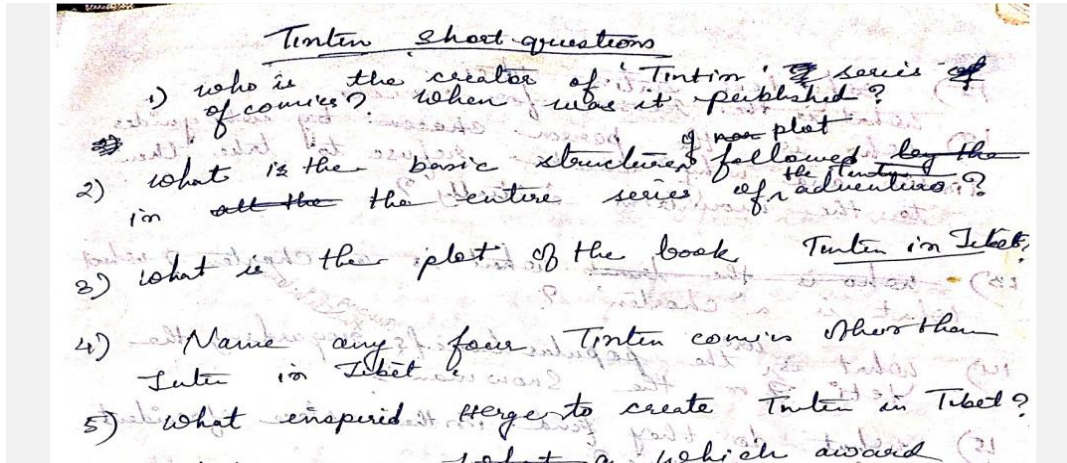 Tintin short questions
1) who is the creator of 'Tintin' series
of comics? When was it published?
of plot
2) what is the basic structure followed by the
in all the the entire series of the Tintin adventures?
3) what is the plot of the book Tintin in Tibet?
4) Name any four Tintin comics other than
Tintin in Tibet.
5) what inspired Herge to create Tintin in Tibet?
which award